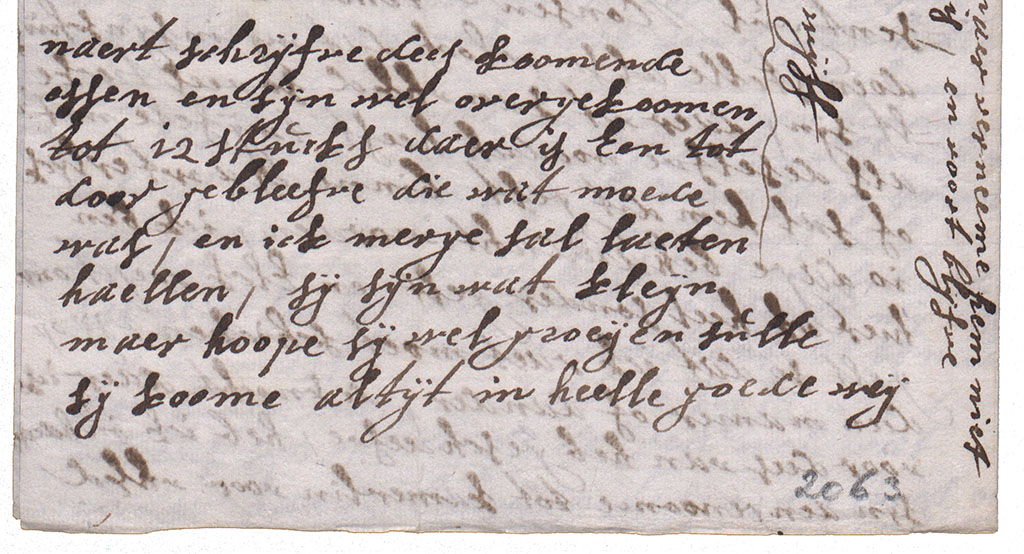 naert schrijfve dees koomende
ossen en sijn wel overgekoomen
tot 12 stucks daer is een tot
door gebleefve die wat moede
was, en ick merge sal laeten
haellen, sij sijn wat kleijn
maer hoope sij wel groeijen sulle
sij koome altijt in heelle goede weij
2063
wijff
verneeme hem niet
en voort blijfve